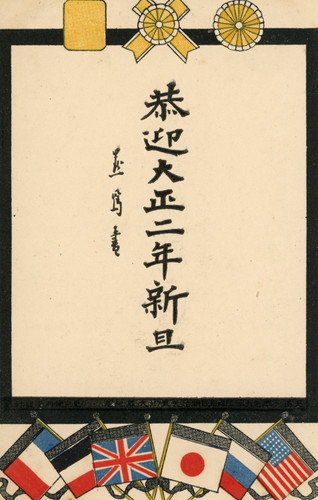 恭迎大正二年新旦